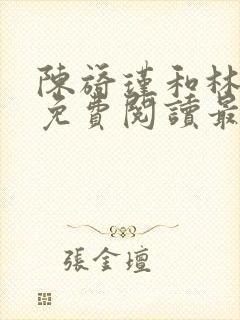 陳旖瑾和林
免費閱讀最
張金壇